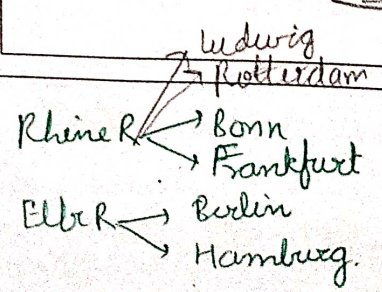 Ludwig
Rotterdam
Rhine R → Bonn
→ Frankfurt
Elbe R → Berlin
→ Hamburg.